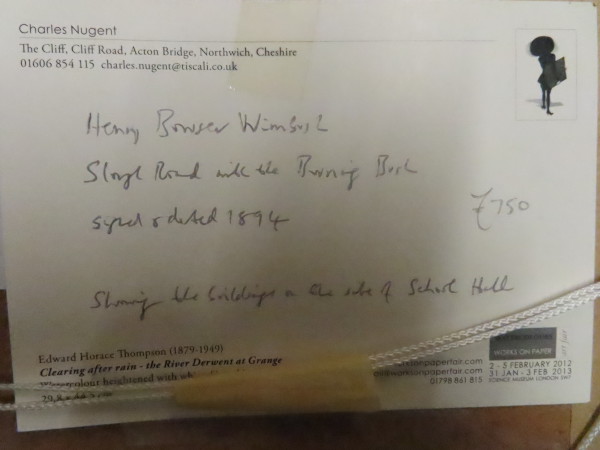 Charles Nugent
The Cliff, Cliff Road, Acton Bridge, Northwich, Cheshire
01606 854 115 charles.nugent@tiscali.co.uk
Henry Bowser Wimbush
Slough Road with the Burning Bush
signed & dated 1894
£750
Showing the buildings on the site of School Hall
Edward Horace Thompson (1879-1949)
Clearing after rain - the River Derwent at Grange
heightened with
WORKS ON PAPER
2 - 5 FEBRUARY 2012
31 JAN - 3 FEB 2013
SCIENCE MUSEUM LONDON SW7
worksonpaperfair.com
@worksonpaperfair.com
01798 861 815